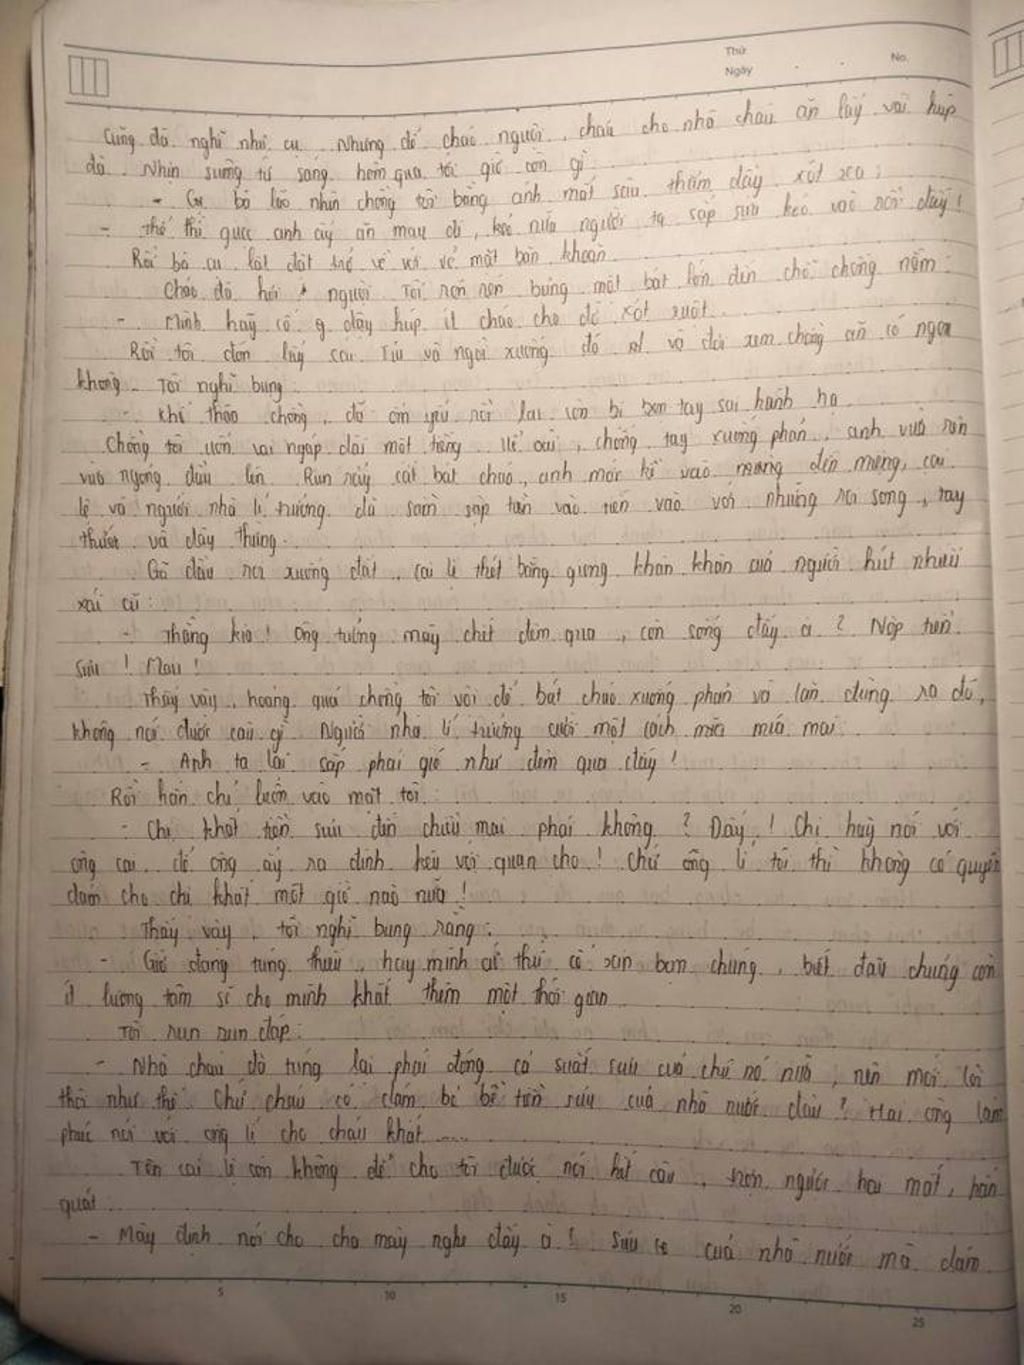 Thứ
Ngày
No.
Cũng đã nghĩ như cụ. Nhưng để cháo nguội, cháu cho nhà cháu ăn lấy vài húp
đã. Nhịn suông từ sáng hôm qua tới giờ còn gì.
- Cụ bà lão nhìn chồng tôi bằng ánh mắt sâu thẳm đầy xót xa:
- thế thì giục anh ấy ăn mau đi, kẻo nữa người ta sắp sửa kéo vào rồi đấy!
Rồi bà cụ lật đật trở về với vẻ mặt băn khoăn.
Cháo đã hơi nguội. Tôi rón rén bưng một bát lớn đến chỗ chồng nằm:
- Mình hãy cố g dậy húp ít cháo cho đỡ xót ruột.
Rồi tôi đón lấy cái Tíu và ngồi xuống đó như có đợi xem chồng ăn có ngon
không. Tôi nghĩ bụng:
- khổ thân chồng, đã ốm yếu rồi lại còn bị bọn tay sai hành hạ.
Chồng tôi uốn vai ngáp dài một tiếng. Uể oải, chống tay xuống phản, anh vừa rên
vừa ngỏng đầu lên. Run rẩy cất bát cháo, anh mới kề vào miệng đến miệng, cai
lệ và người nhà lí trưởng đã sầm sập tiến vào với những roi song, tay
thước và dây thừng.
Gõ đầu roi xuống đất, cai lệ thét bằng giọng khàn khàn của người hút nhiều
xái cũ:
- Thằng kia! Ông tưởng mày chết đêm qua, còn sống đấy à? Nộp tiền
sưu! Mau!
Thấy vậy, hoảng quá chồng tôi vội để bát cháo xuống phản và lăn đùng ra đó,
không nói được câu gì. Người nhà lí trưởng cười một cách mỉa mai:
- Anh ta lại sắp phải gió như đêm qua đấy!
Rồi hắn chỉ luôn vào mặt tôi:
- Chị khất tiền sưu đến chiều mai phải không? Đấy! Chị hãy nói với
ông cai để ông ấy ra đình kêu với quan cho! Chứ ông lí tôi thì không có quyền
dám cho chị khất một giờ nào nữa!
Thấy vậy, tôi nghĩ bụng rằng:
- Giờ đang túng thiếu, hay mình cứ thử cố xin bọn chúng, biết đâu chúng còn
ít lương tâm sẽ cho mình khất thêm một thời gian.
Tôi run run đáp:
- Nhà cháu đã túng lại phải đóng cả suất sưu của chú nó nữa, nên mới lôi
thôi như thế. Chứ cháu có dám bỏ bễ tiền sưu của nhà nước đâu? Hai ông làm
phúc nói với ông lí cho cháu khất.....
Tên cai lệ còn không để cho tôi được nói hết câu, trợn ngược hai mắt, hắn
quát:
- Mày định nói cho cha mày nghe đấy à? Sưu của nhà nước mà dám
5
10
15
20
25